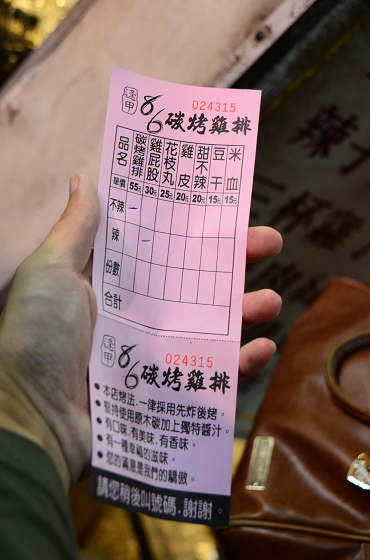 逢甲 86 碳烤雞排
024315
品名 碳烤雞排 雞屁股 花枝丸 雞皮 甜不辣 豆干 米血
單價 55元 30元 25元 20元 20元 15元 15元
不辣
辣
份數
合計
逢甲 86 碳烤雞排
024315
●本店烤法,一律採用先炸後烤。
●堅持使用原木碳加上獨特醬汁。
●有口味,有美味,有香味。
●有一種幸福的滋味。
●您的滿意是我們的驕傲。
請您稍後叫號碼,謝謝。